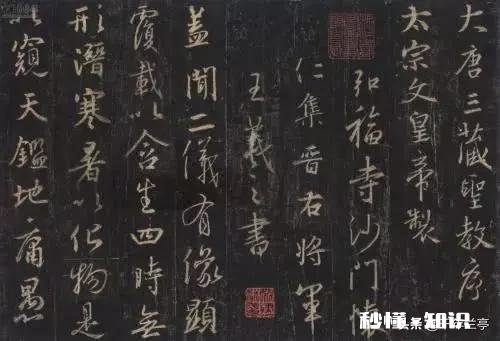 大唐三藏聖教序
太宗文皇帝製
弘福寺沙門懷
仁集晉右將軍
王羲之書
蓋聞二儀有像顯
覆載以含生四時無
形潛寒暑以化物是
以窺天鑑地庸愚
秒懂·知识
兰亭